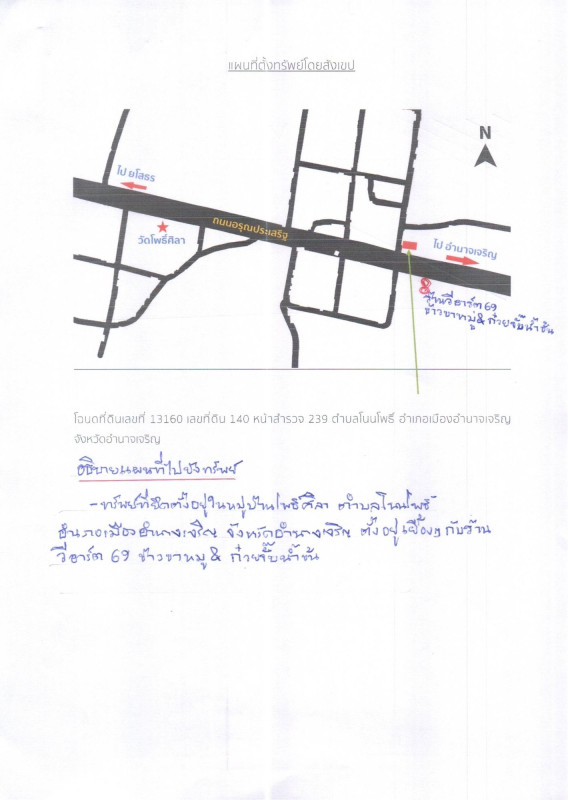 แผนที่ตั้งทรัพย์โดยสังเขป
N
ไป ยโสธร
ถนนอรุณประเสริฐ
วัดโพธิ์ศิลา
ไป อำนาจเจริญ
ร้านวีฮาร์ต 69
ข้าวขาหมู & ก๋วยจั๊บน้ำข้น
โฉนดที่ดินเลขที่ 13160 เลขที่ดิน 140 หน้าสำรวจ 239 ตำบลโนนโพธิ์ อำเภอเมืองอำนาจเจริญ
จังหวัดอำนาจเจริญ
อธิบายแผนที่ไปยังทรัพย์
-ทรัพย์ที่ยึดตั้งอยู่ในหมู่บ้านโพธิ์ศิลา ตำบลโนนโพธิ์
อำเภอเมืองอำนาจเจริญ จังหวัดอำนาจเจริญ ตั้งอยู่เยื้องๆ กับร้าน
วีฮาร์ต 69 ข้าวขาหมู & ก๋วยจั๊บน้ำข้น